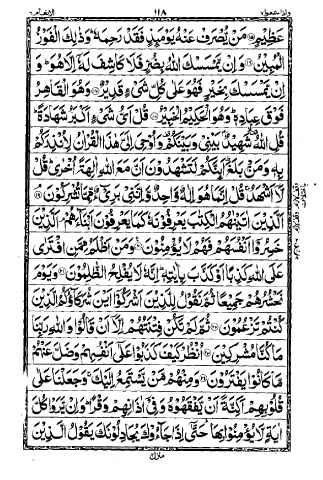 واذا سمعوا ۷ ۱۱۸ الانعام ۶
عَظِيْمٍ ۝ مَنْ يُّصْرَفْ عَنْهُ يَوْمَىِٕذٍ فَقَدْ رَحِمَهٗ ؕ وَذٰلِكَ الْفَوْزُ
الْمُبِيْنُ ۝ وَاِنْ يَّمْسَسْكَ اللّٰهُ بِضُرٍّ فَلَا كَاشِفَ لَهٗۤ اِلَّا هُوَ ؕ وَ
اِنْ يَّمْسَسْكَ بِخَيْرٍ فَهُوَ عَلٰى كُلِّ شَيْءٍ قَدِيْرٌ ۝ وَهُوَ الْقَاهِرُ
فَوْقَ عِبَادِهٖ ؕ وَهُوَ الْحَكِيْمُ الْخَبِيْرُ ۝ قُلْ اَيُّ شَيْءٍ اَكْبَرُ شَهَادَةً ؕ
قُلِ اللّٰهُ ۙ شَهِيْدٌۢ بَيْنِيْ وَبَيْنَكُمْ ۫ وَاُوْحِيَ اِلَيَّ هٰذَا الْقُرْاٰنُ لِاُنْذِرَكُمْ
بِهٖ وَمَنْۢ بَلَغَ ؕ اَىِٕنَّكُمْ لَتَشْهَدُوْنَ اَنَّ مَعَ اللّٰهِ اٰلِهَةً اُخْرٰى ؕ قُلْ
لَّاۤ اَشْهَدُ ۚ قُلْ اِنَّمَا هُوَ اِلٰهٌ وَّاحِدٌ وَّاِنَّنِيْ بَرِيْٓءٌ مِّمَّا تُشْرِكُوْنَ ۝
اَلَّذِيْنَ اٰتَيْنٰهُمُ الْكِتٰبَ يَعْرِفُوْنَهٗ كَمَا يَعْرِفُوْنَ اَبْنَآءَهُمْ ۘ اَلَّذِيْنَ
خَسِرُوْۤا اَنْفُسَهُمْ فَهُمْ لَا يُؤْمِنُوْنَ ۝ وَمَنْ اَظْلَمُ مِمَّنِ افْتَرٰى
عَلَى اللّٰهِ كَذِبًا اَوْ كَذَّبَ بِاٰيٰتِهٖ ؕ اِنَّهٗ لَا يُفْلِحُ الظّٰلِمُوْنَ ۝ وَيَوْمَ
نَحْشُرُهُمْ جَمِيْعًا ثُمَّ نَقُوْلُ لِلَّذِيْنَ اَشْرَكُوْۤا اَيْنَ شُرَكَآؤُكُمُ الَّذِيْنَ
كُنْتُمْ تَزْعُمُوْنَ ۝ ثُمَّ لَمْ تَكُنْ فِتْنَتُهُمْ اِلَّاۤ اَنْ قَالُوْا وَاللّٰهِ رَبِّنَا
مَا كُنَّا مُشْرِكِيْنَ ۝ اُنْظُرْ كَيْفَ كَذَبُوْا عَلٰۤى اَنْفُسِهِمْ وَضَلَّ عَنْهُمْ
مَّا كَانُوْا يَفْتَرُوْنَ ۝ وَمِنْهُمْ مَّنْ يَّسْتَمِعُ اِلَيْكَ ۚ وَجَعَلْنَا عَلٰى
قُلُوْبِهِمْ اَكِنَّةً اَنْ يَّفْقَهُوْهُ وَفِيْۤ اٰذَانِهِمْ وَقْرًا ؕ وَاِنْ يَّرَوْا كُلَّ
اٰيَةٍ لَّا يُؤْمِنُوْا بِهَا ؕ حَتّٰۤى اِذَا جَآءُوْكَ يُجَادِلُوْنَكَ يَقُوْلُ الَّذِيْنَ
منزل